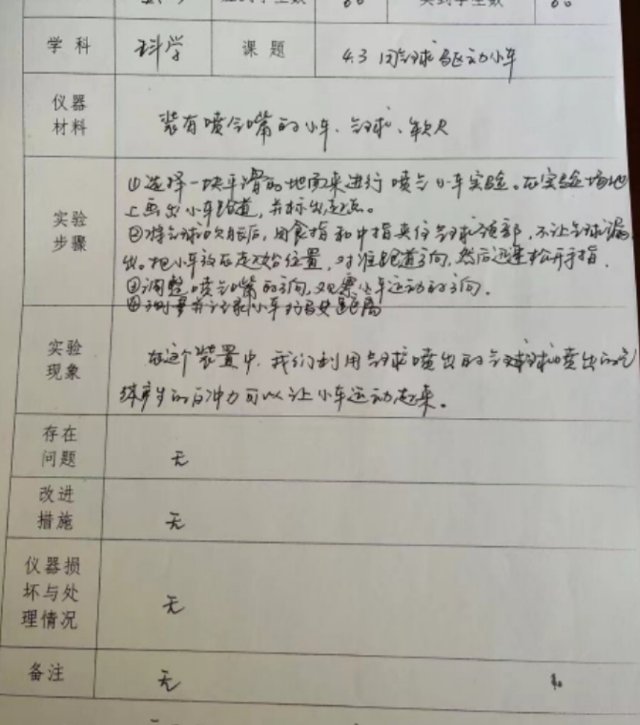 学科 科学 课题 4.3 用气球驱动小车
仪器
材料
装有喷气嘴的小车、气球、软尺
实验
步骤
①选择一块平滑的地面来进行喷气小车实验。在实验场地
上画出小车跑道，并标出起点。
②将气球吹胀后，用食指和中指夹住气球颈部，不让气球漏
出。把小车放在起始位置，对准跑道方向，然后迅速松开手指.
③调整喷气嘴的方向，观察小车运动的方向.
④测量并记录小车行驶距离
实验
现象
在这个装置中，我们利用气球喷出的气球喷出的气
体产生的反冲力可以让小车运动起来。
存在
问题
无
改进
措施
无
仪器损
坏与处
理情况
无
备注
无